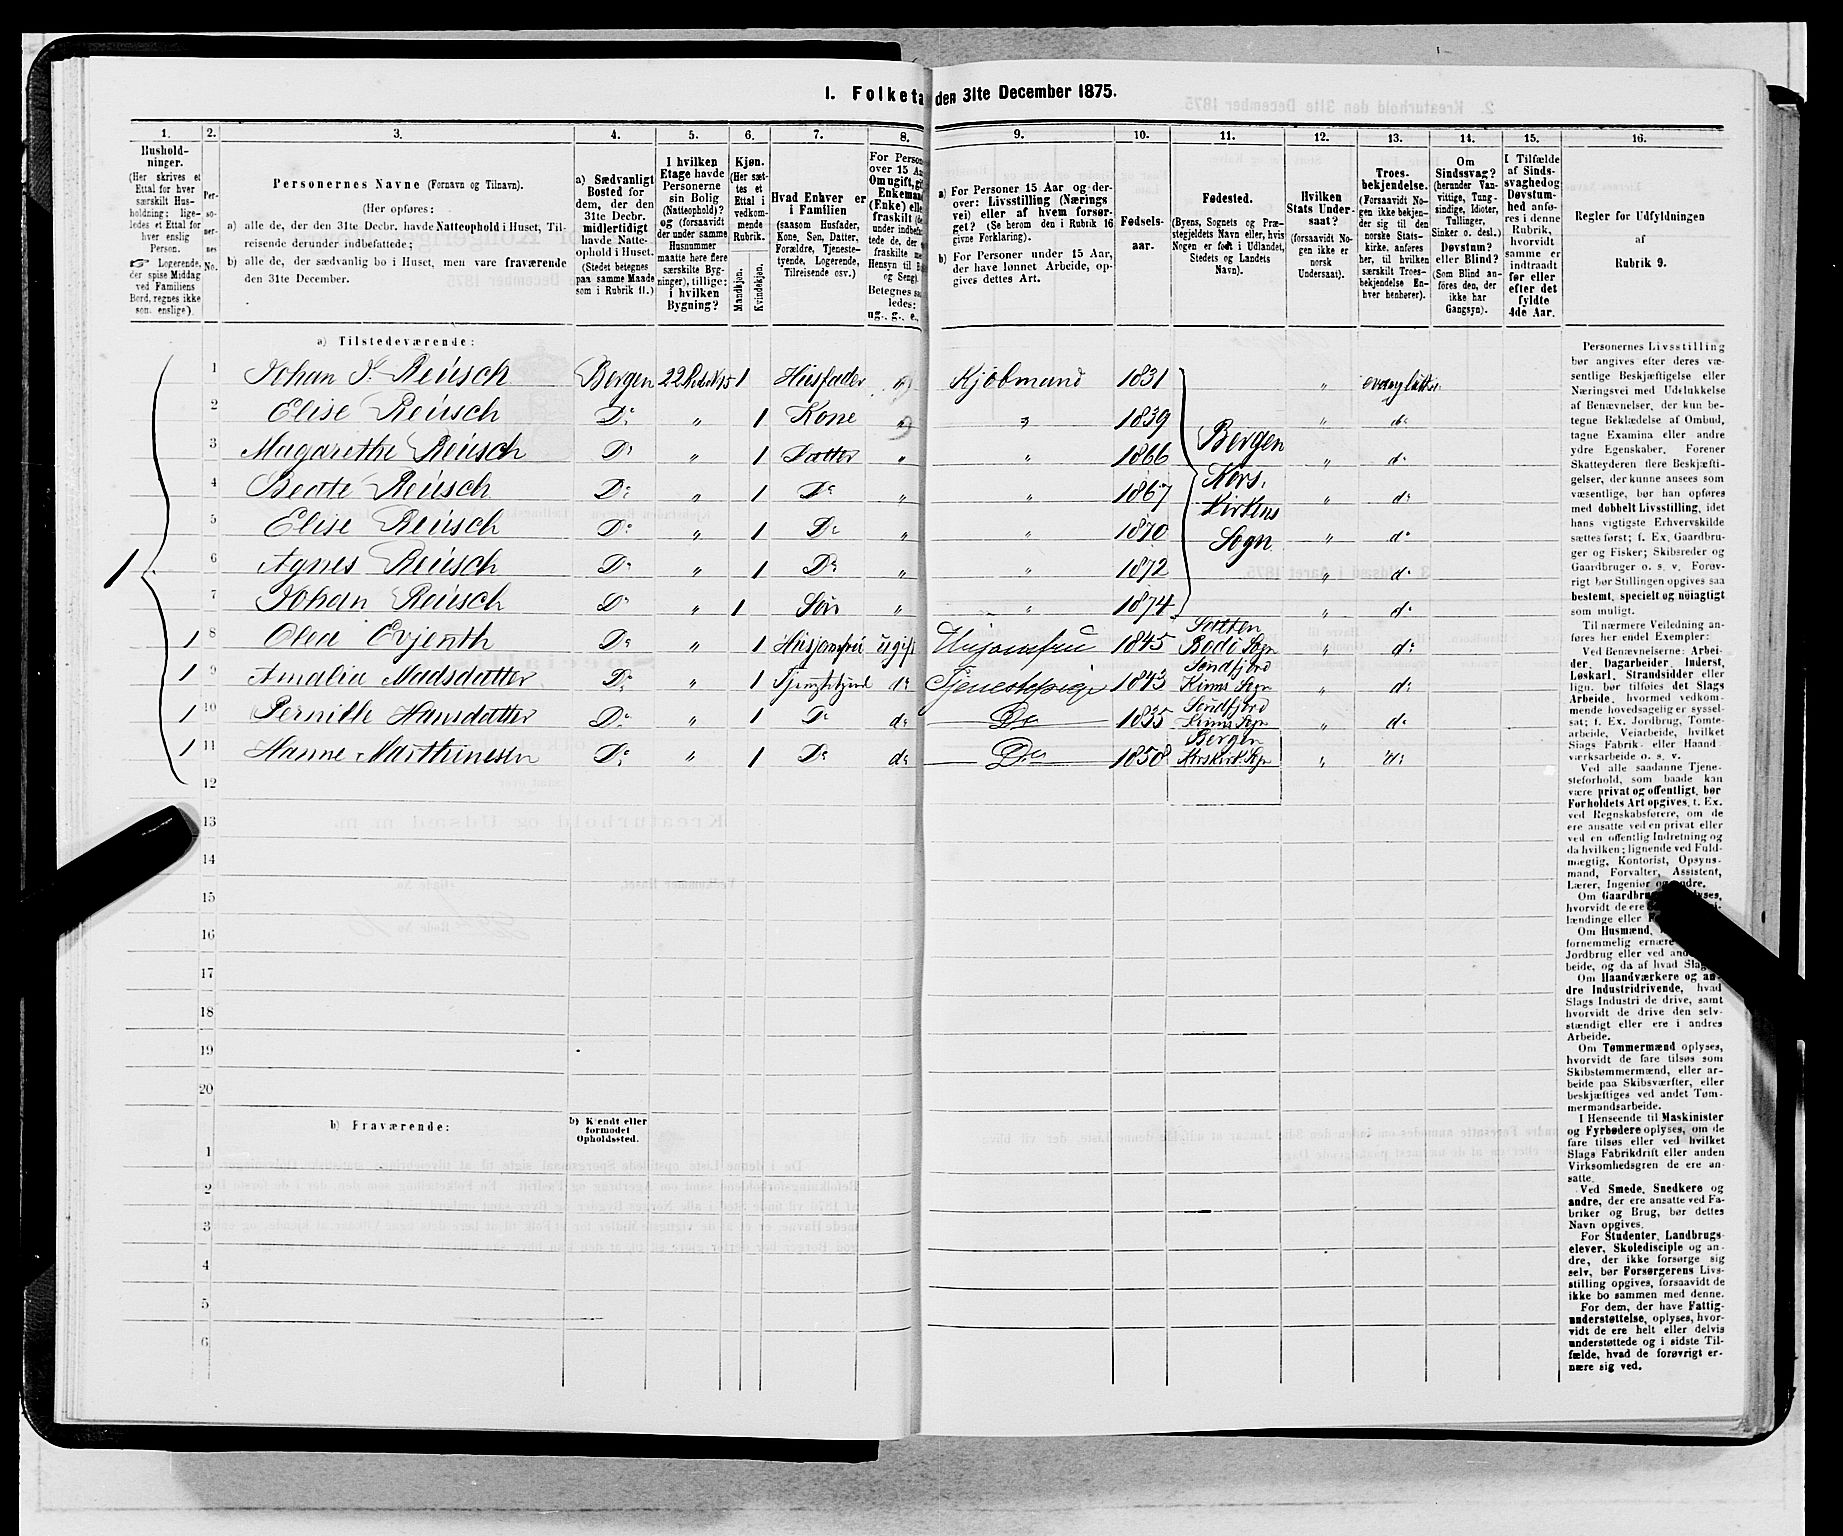 1. Folketa den 31te December 1875.
1. 2. 3. 4. 5. 6. 7. 8. 9. 10. 11. 12. 13. 14. 15. 16.
Hushold-
ninger.
(Her skrives et
Ettal for hver
særskilt Hus-
holdning; lige-
ledes et Ettal for
hver enslig
Person.
☞ Logerende,
der spise Middag
ved Familiens
Bord, regnes ikke
som enslige).
Per-
so-
ner-
nes
No.
Personernes Navne (Fornavn og Tilnavn).
(Her opføres:
a) alle de, der den 31te Decbr. havde Natteophold i Huset, Til-
reisende derunder indbefattede;
b) alle de, der sædvanlig bo i Huset, men vare fraværende
den 31te December.
a) Sædvanligt
Bosted for
dem, der den
31te Decbr.
midlertidigt
havde Natte-
ophold i Huset.
(Stedet betegnes
paa samme Maade
som i Rubrik 11.)
I hvilken
Etage havde
Personerne
sin Bolig
(Natteophold)?
og (forsaavidt
der under samme
Husnummer
maatte høre flere
særskilte Byg-
ninger), tillige:
i hvilken
Bygning?
Kjøn.
(Her sæt-
tes et
Ettal i
vedkom-
mende
Rubrik.
Mandkjøn.
Kvindekjøn.
Hvad Enhver er
i Familien
(saasom Husfader,
Kone, Søn, Datter,
Forældre, Tjeneste-
tyende, Logerende,
Tilreisende osv.)
For Person
over 15 Aa
Om ugift, gi
Enkeman
(Enke) elle
fraskilt (de
under indbefa
tede de, der e
fraskilte me
Hensyn til B
og Seng).
Betegnes saa
ledes:
ug., g., e.,
a) For Personer 15 Aar og der-
over: Livsstilling (Nærings
vei) eller af hvem forsør-
get? (Se herom den i Rubrik 16
givne Forklaring).
b) For Personer under 15 Aar,
der have lønnet Arbeide, op-
gives dettes Art.
Fødsels-
aar.
Fødested.
(Byens, Sognets og Præ-
stegjeldets Navn eller, hvis
Nogen er født i Udlandet,
Stedets og Landets
Navn).
Hvilken
Stats Under-
saat?
(forsaavidt No-
gen ikke er
norsk
Undersaat).
Troes-
bekjendelse.
(Forsaavidt No-
gen ikke bekjen-
der sig til den
norske Stats-
kirke, anføres
her, til hvilken
særskilt Troes-
bekjendelse En-
hver henhører).
Om
Sindssvag?
(herunder Van-
vittige, Tung-
sindige, Idioter,
Tullinger,
Sinker o. desl.)
Døvstum?
eller Blind?
(Som Blind an-
føres den, der
ikke har
Gangsyn).
I Tilfælde
af Sinds-
svaghed og
Døvstum-
hed anfø-
res i denne
Rubrik,
hvorvidt
samme er
indtraadt
før eller
efter det
fyldte
4de Aar.
Regler for Udfyldningen
af
Rubrik 9.
a) Tilstedeværende:
1 Johan F. Reusch Bergen 1 Husfader g Kjøbmand 1831 „
2 Elise Reusch Do „ 1 Kone g „ 1839 „ do
3 Magarethe Reusch Do „ 1 Datter „ „ 1866 „ do
4 Beate Reusch Do „ 1 Do „ „ 1867 „ do
5 Elise Reusch Do „ 1 Do „ „ 1870 „ do
6 Agnes Reusch Do „ 1 Do „ „ 1872 „ do
7 Johan Reusch Do „ 1 Søn „ „ 1874 „ do
Bergen
Kors.
Kirkens
Sogn
1
1 8 Olea Evjenth Do „ 1 Husjomfru ugift Husjomfru 1845 Bodø Sogn „ do
1 9 Amalia Madsdatter Do „ 1 do Tjenestepige 1843 Søndfjord Kinns Sogn „ do
1 10 Pernille Hansdatter Do „ 1 Do do Do 1835 Søndfjord Kinns Sogn „ do
1 11 Hanne Marthinesen Do „ 1 Do do Do 1850 Bergen Korskirk. Sogn „ do
12
13
14
15
16
17
18
19
20
b) Fraværende:
b) Kjendt eller
formodet
Opholdssted.
1
2
3
4
5
6
Personernes Livsstilling
bør angives efter deres væ-
sentlige Beskjæftigelse eller
Næringsvei med Udelukkelse
af Benævnelser, der kun be-
tegne Beklædelse af Ombud,
tagne Examina eller andre
ydre Egenskaber. Forener
Skatteyderen flere Beskjæfti-
gelser, der kunne ansees som
væsentlige, bør han opføres
med dobbelt Livsstilling, idet
hans vigtigste Erhvervskilde
sættes først; f. Ex. Gaardbru-
ger og Fisker; Skibsreder og
Gaardbruger o. s. v. Forøv-
rigt bør Stillingen opgives saa
bestemt, specielt og nøiagtigt
som muligt.
Til nærmere Veiledning an-
føres her endel Exempler:
Ved Benævnelserne: Arbei-
der, Dagarbeider, Inderst,
Løskarl, Strandsidder eller
lign. bør tilføies det Slags
Arbeide, hvormed vedkom-
mende hovedsagelig er syssel-
sat; f. Ex. Jordbrug, Tomte-
arbeide, Veiarbeide, hvilket
Slags Fabrik- eller Haand-
værksarbeide o. s. v.
Ved alle saadanne Tjene-
steforhold, som baade kan
være privat og offentligt, bør
Forholdets Art opgives, f. Ex.
ved Regnskabsførere, om de
ere ansatte ved en privat eller
ved en offentlig Indretning og
da hvilken; lignende ved Fuld-
mægtig, Kontorist, Opsyns-
mand, Forvalter, Assistent,
Lærer, Ingeniør og andre.
Om Gaardbru lyses,
hvorvidt de ere
lændinge eller
Om Husmænd,
fornemmelig ernære
Jordbrug eller ved and
beide, og da af hvad Slag
Om Haandværkere og an-
dre Industridrivende, hvad
Slags Industri de drive, samt
hvorvidt de drive den selv-
stændigt eller ere i andres
Arbeide.
Om Tømmermænd oplyses,
hvorvidt de fare tilsøs som
Skibstømmermænd, eller ar-
beide paa Skibsværfter, eller
beskjæftiges ved andet Tøm-
mermandsarbeide.
I Henseende til Maskinister
og Fyrbødere oplyses, om de
fare tilsøs eller ved hvilket
Slags Fabrikdrift eller anden
Virksomhedsgren de ere an-
satte.
Ved Smede, Snedkere og
andre, der ere ansatte ved Fa-
briker og Brug, bør dettes
Navn opgives.
For Studenter, Landbrugs-
elever, Skoledisciple og an-
dre, der ikke forsørge sig
selv, bør Forsørgerens Livs-
stilling opgives, forsaavidt de
ikke bo sammen med denne.
For dem, der have Fattig-
understøttelse, oplyses, hvor-
vidt de ere helt eller delvis
understøttede og i sidste Til-
fælde, hvad de forøvrigt er-
nære sig ved.